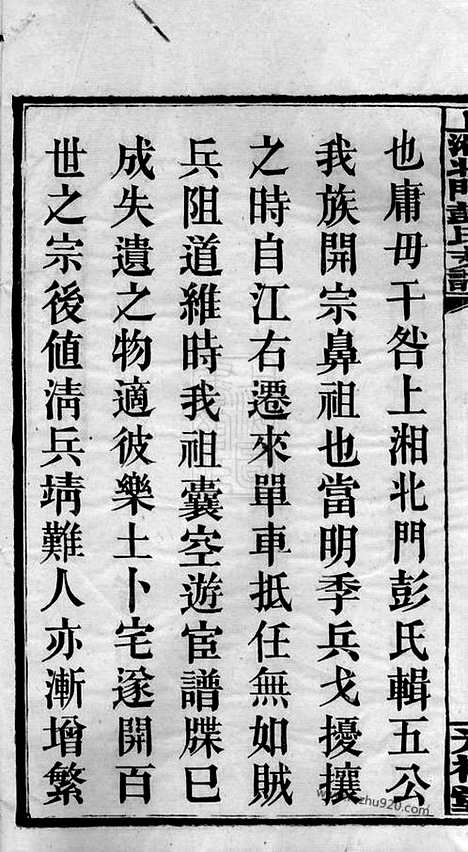 也庸毋干咎上湘北門彭氏輯五公
我族開宗鼻祖也當明季兵戈擾攘
之時自江右遷來單車抵任無如賊
兵阻道維時我祖囊空遊宦譜牒已
成失遺之物適彼樂土卜宅遂開百
世之宗後値清兵靖難人亦漸增繁